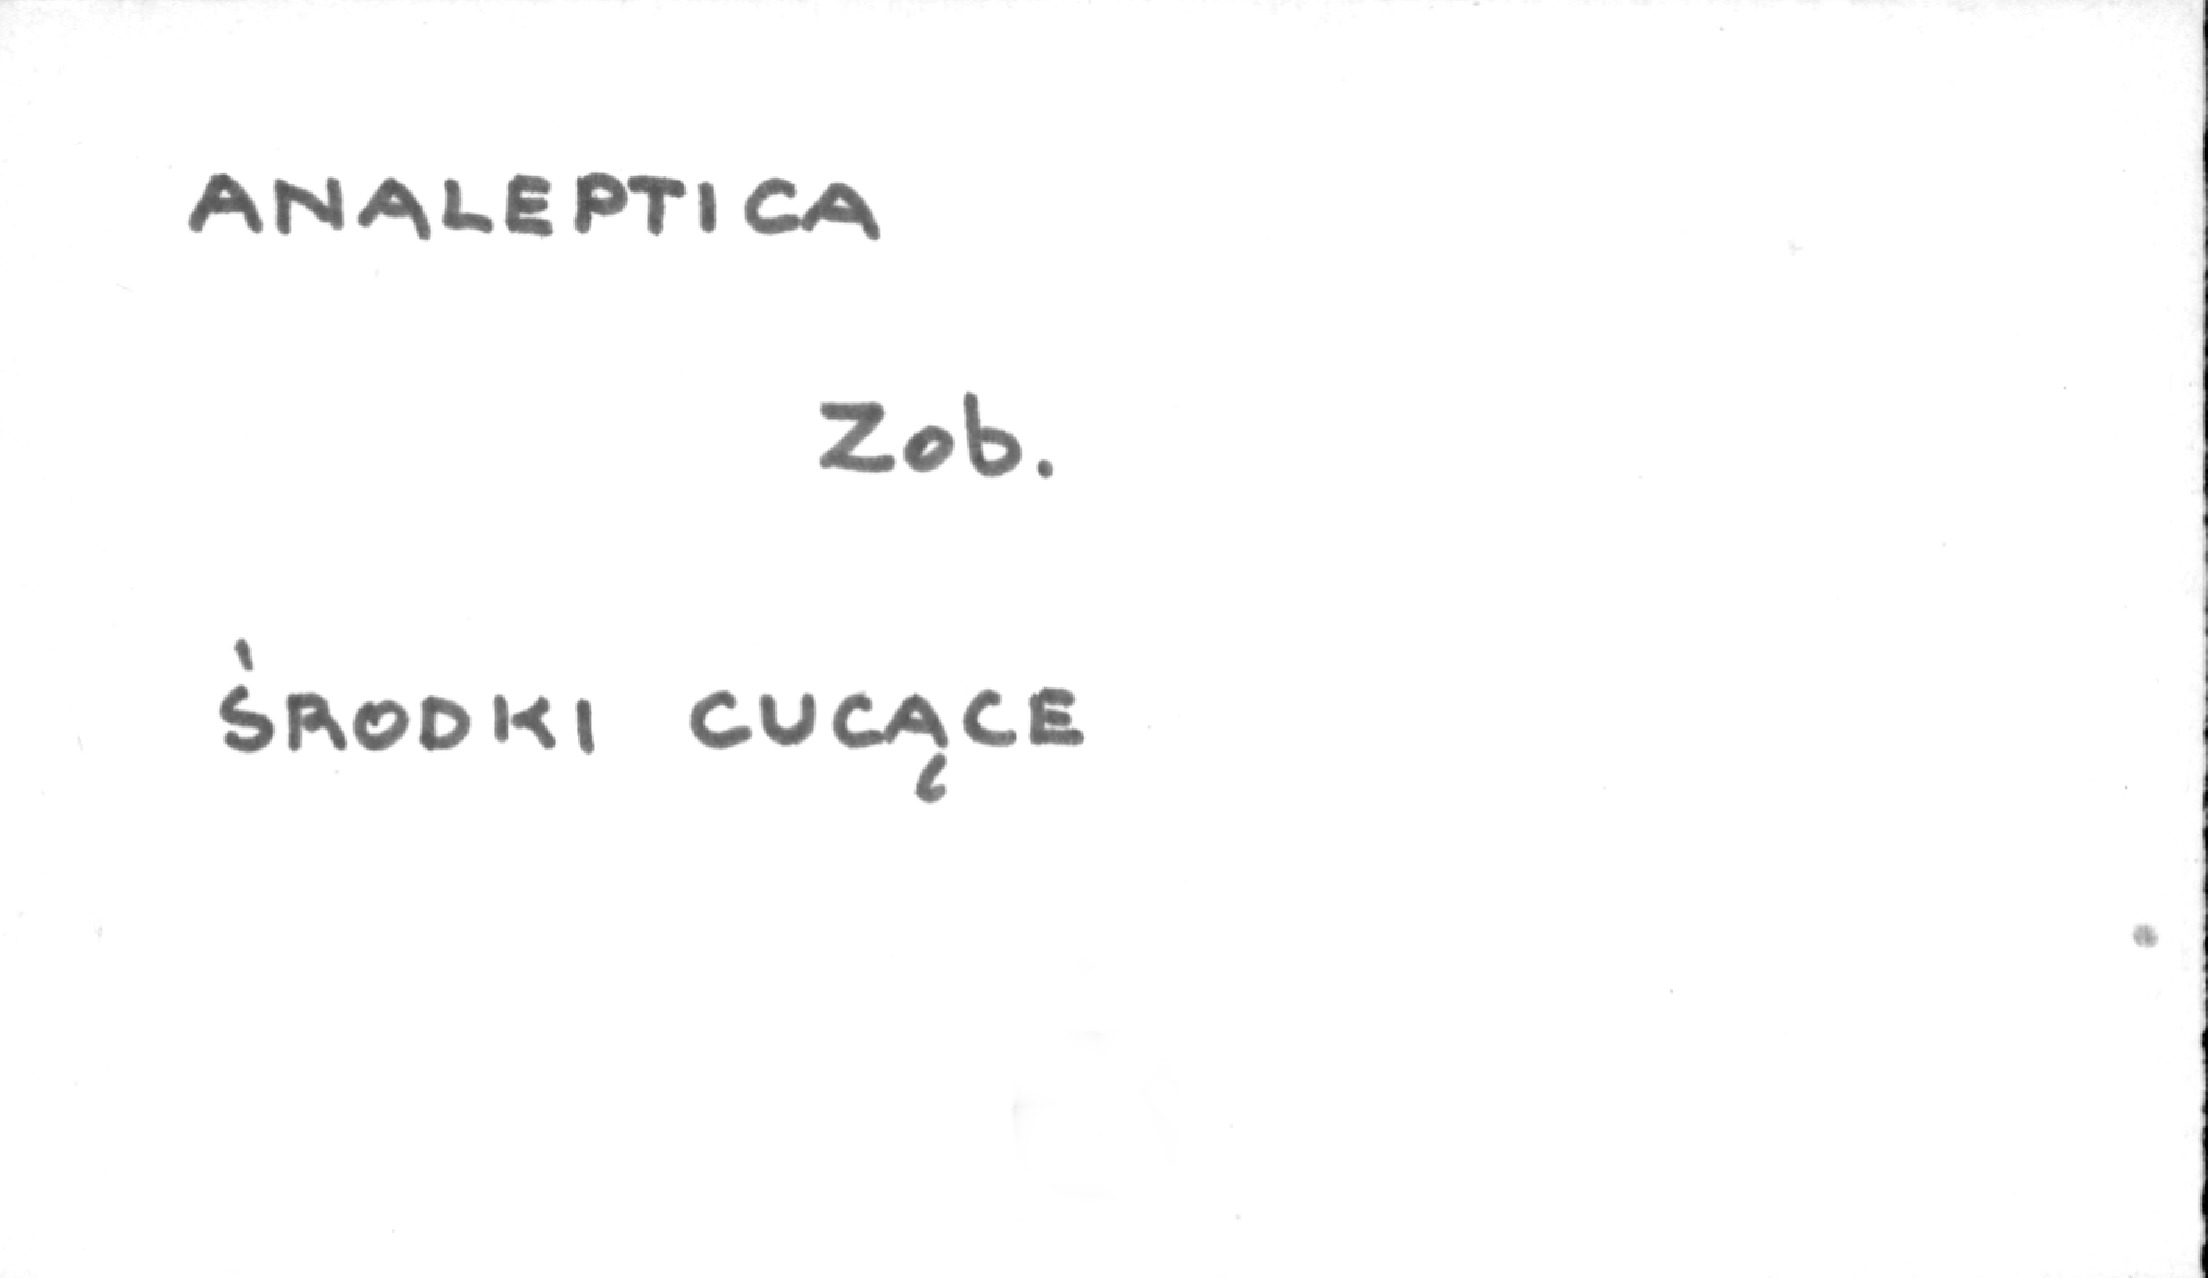 ANALEPTICA
Zob.
ŚRODKI CUCĄCE